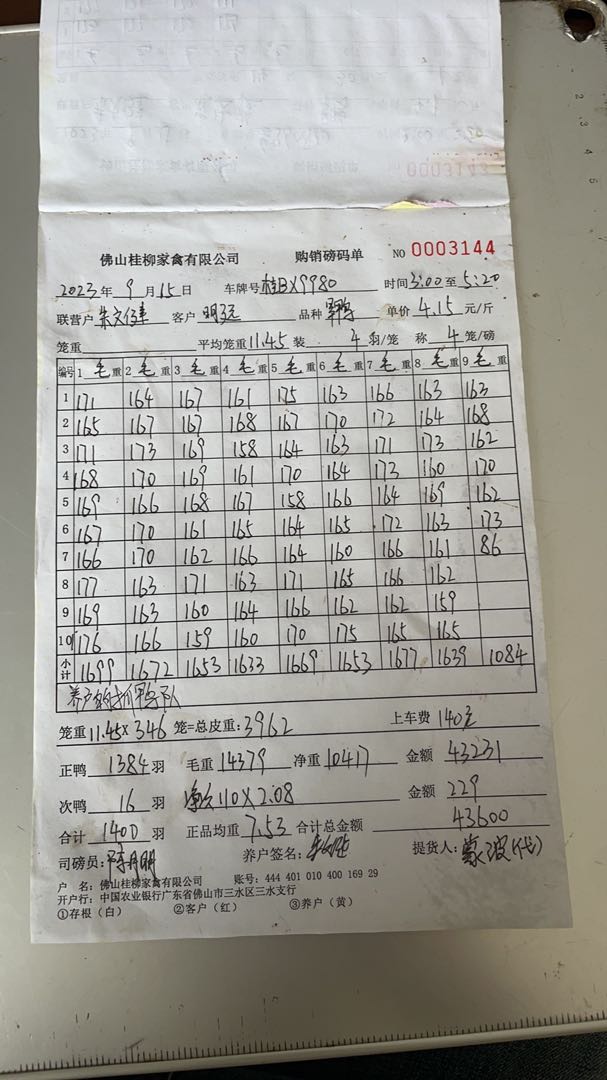 0003143
佛山桂柳家禽有限公司 购销磅码单 NO 0003144
2023年 9月15日 车牌号 桂BX9980 时间3:00至5:20
联营户 客户 明远 品种 单价 4.15 元/斤
笼重 平均笼重11.45 装 4 羽/笼 称 4 笼/磅
编号 1 毛重 2 毛重 3 毛重 4 毛重 5 毛重 6 毛重 7 毛重 8 毛重 9 毛重
1 171 164 167 161 175 163 166 163 163
2 165 167 167 168 167 170 172 164 168
3 171 173 169 158 164 163 171 173 162
4 168 170 169 161 170 164 173 160 170
5 169 166 168 167 158 166 164 169 162
6 167 170 161 165 164 165 172 163 173
7 166 170 162 166 164 160 166 161 86
8 177 163 171 163 171 165 166 162
9 169 163 160 164 166 162 162 159
10 176 166 159 160 170 175 165 165
小计 1699 1672 1653 1633 1669 1653 1677 1639 1084
养户
笼重 11.45X346 笼=总皮重:3962 上车费 140元
正鸭 1384 羽 毛重 14379 净重 10417 金额 43231
次鸭 16 羽 110X2.08 金额 229
合计 1400 羽 正品均重 7.53 合计总金额 43600
司磅员: 养户签名: 提货人: 蒙波(代)
户 名: 佛山桂柳家禽有限公司 账号: 444 401 010 400 169 29
开户行: 中国农业银行广东省佛山市三水区三水支行
①存根(白) ②客户(红) ③养户(黄)